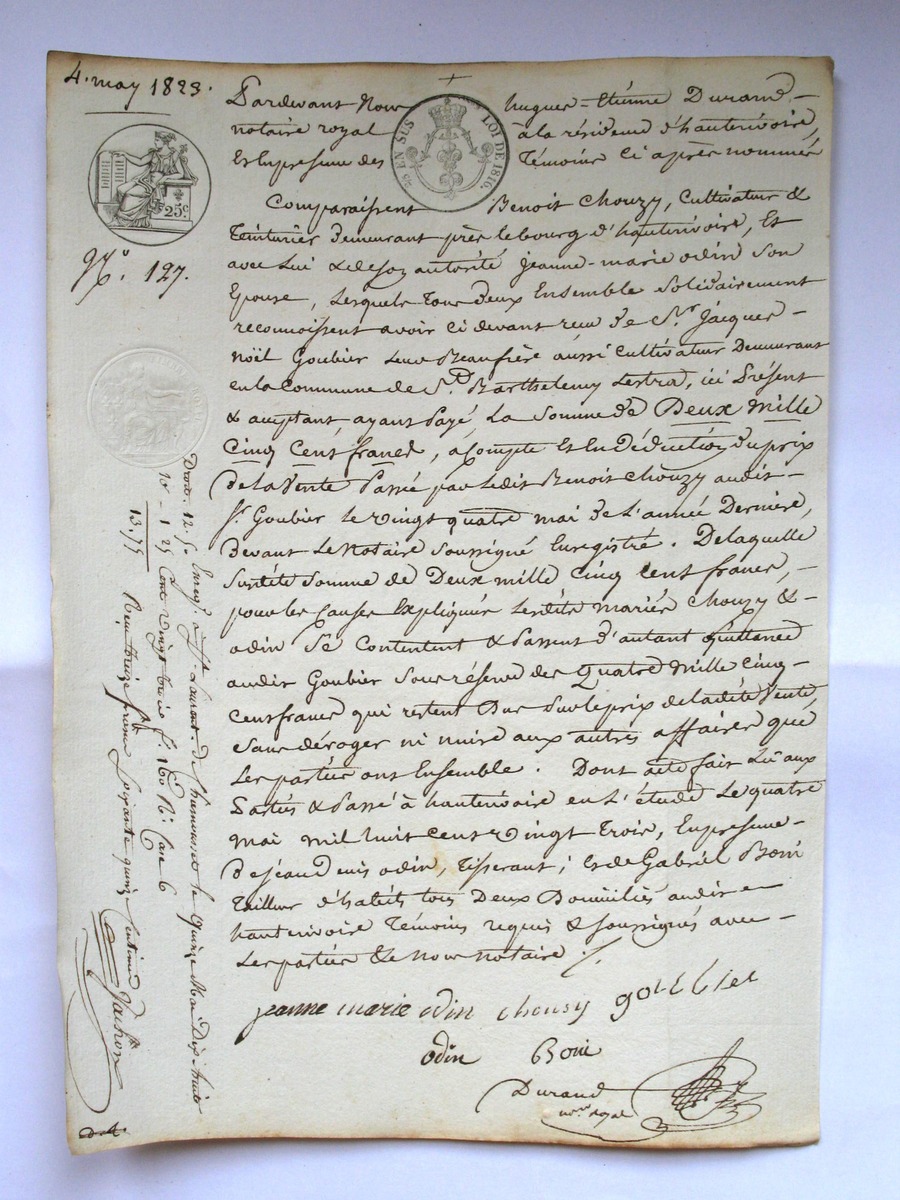 4. may 1823.
25c
EN SUS LOI DE 1816.
No. 127.
Pardevant Nous hugues-Etienne Durand -
notaire royal à la résidence d'hauterivoire,
Et En presence des Témoins Ci après nommés
Comparaissent Benoit Chouzy, Cultivateur &
Teinturier demeurant près le bourg d'hauterivoire, Et
avec Lui & de son autorité jeanne-marie odin son
Epouse, Lesquels Tous deux Ensemble Solidairement
reconnoissent avoir Ci devant reçu de Sr. Jacques -
Noël Goubier Leur Beaufrère aussi Cultivateur Demeurant
en la Commune de St. Barthelemy Lestra, ici Présent
& acceptant, ayant Payé, La Somme de Deux Mille
Cinq Cent francs, a Compte Et En Déduction du prix
de la Vente Passé par Ledit Benoit Chouzy audit -
Sr. Goubier Le Vingt quatre mai de L'année Dernière,
devant Le Notaire soussigné Enregistré. De laquelle
susdite somme de Deux mille Cinq Cent francs, -
pour les Causes Expliquées Lesdits mariés Chouzy & -
odin Se Contentent & Passent d'autant Quittance
audit Goubier Sous réserve des Quatre Mille Cinq -
Cent francs qui restent Dus Sur le prix de ladite Vente,
Sans déroger ni nuire aux autres affaires que
Les parties ont Ensemble. Dont acte fait Lû aux
Parties & Passé à hauterivoire en L'étude Le quatre
mai mil huit Cent Vingt Trois, En presence -
de jean denis odin, Tisserant; Et de Gabriel Boni
Tailleur d'habits tous Deux Domiciliés audit -
hauterivoire Témoins requis & soussignés avec -
Les parties & Nous notaire ./.
jeanne marie odin chousy goubier
odin Boni
Durand
no.re royal
Droits. 12. 50 Enreg. à St. Laurent de Chamousset le Quinze Mai Dix-huit
10e - 1 25 Cent Vingt trois fo. 160 Ro. Case 6
13.75 Reçu treize francs soixante quinze centimes